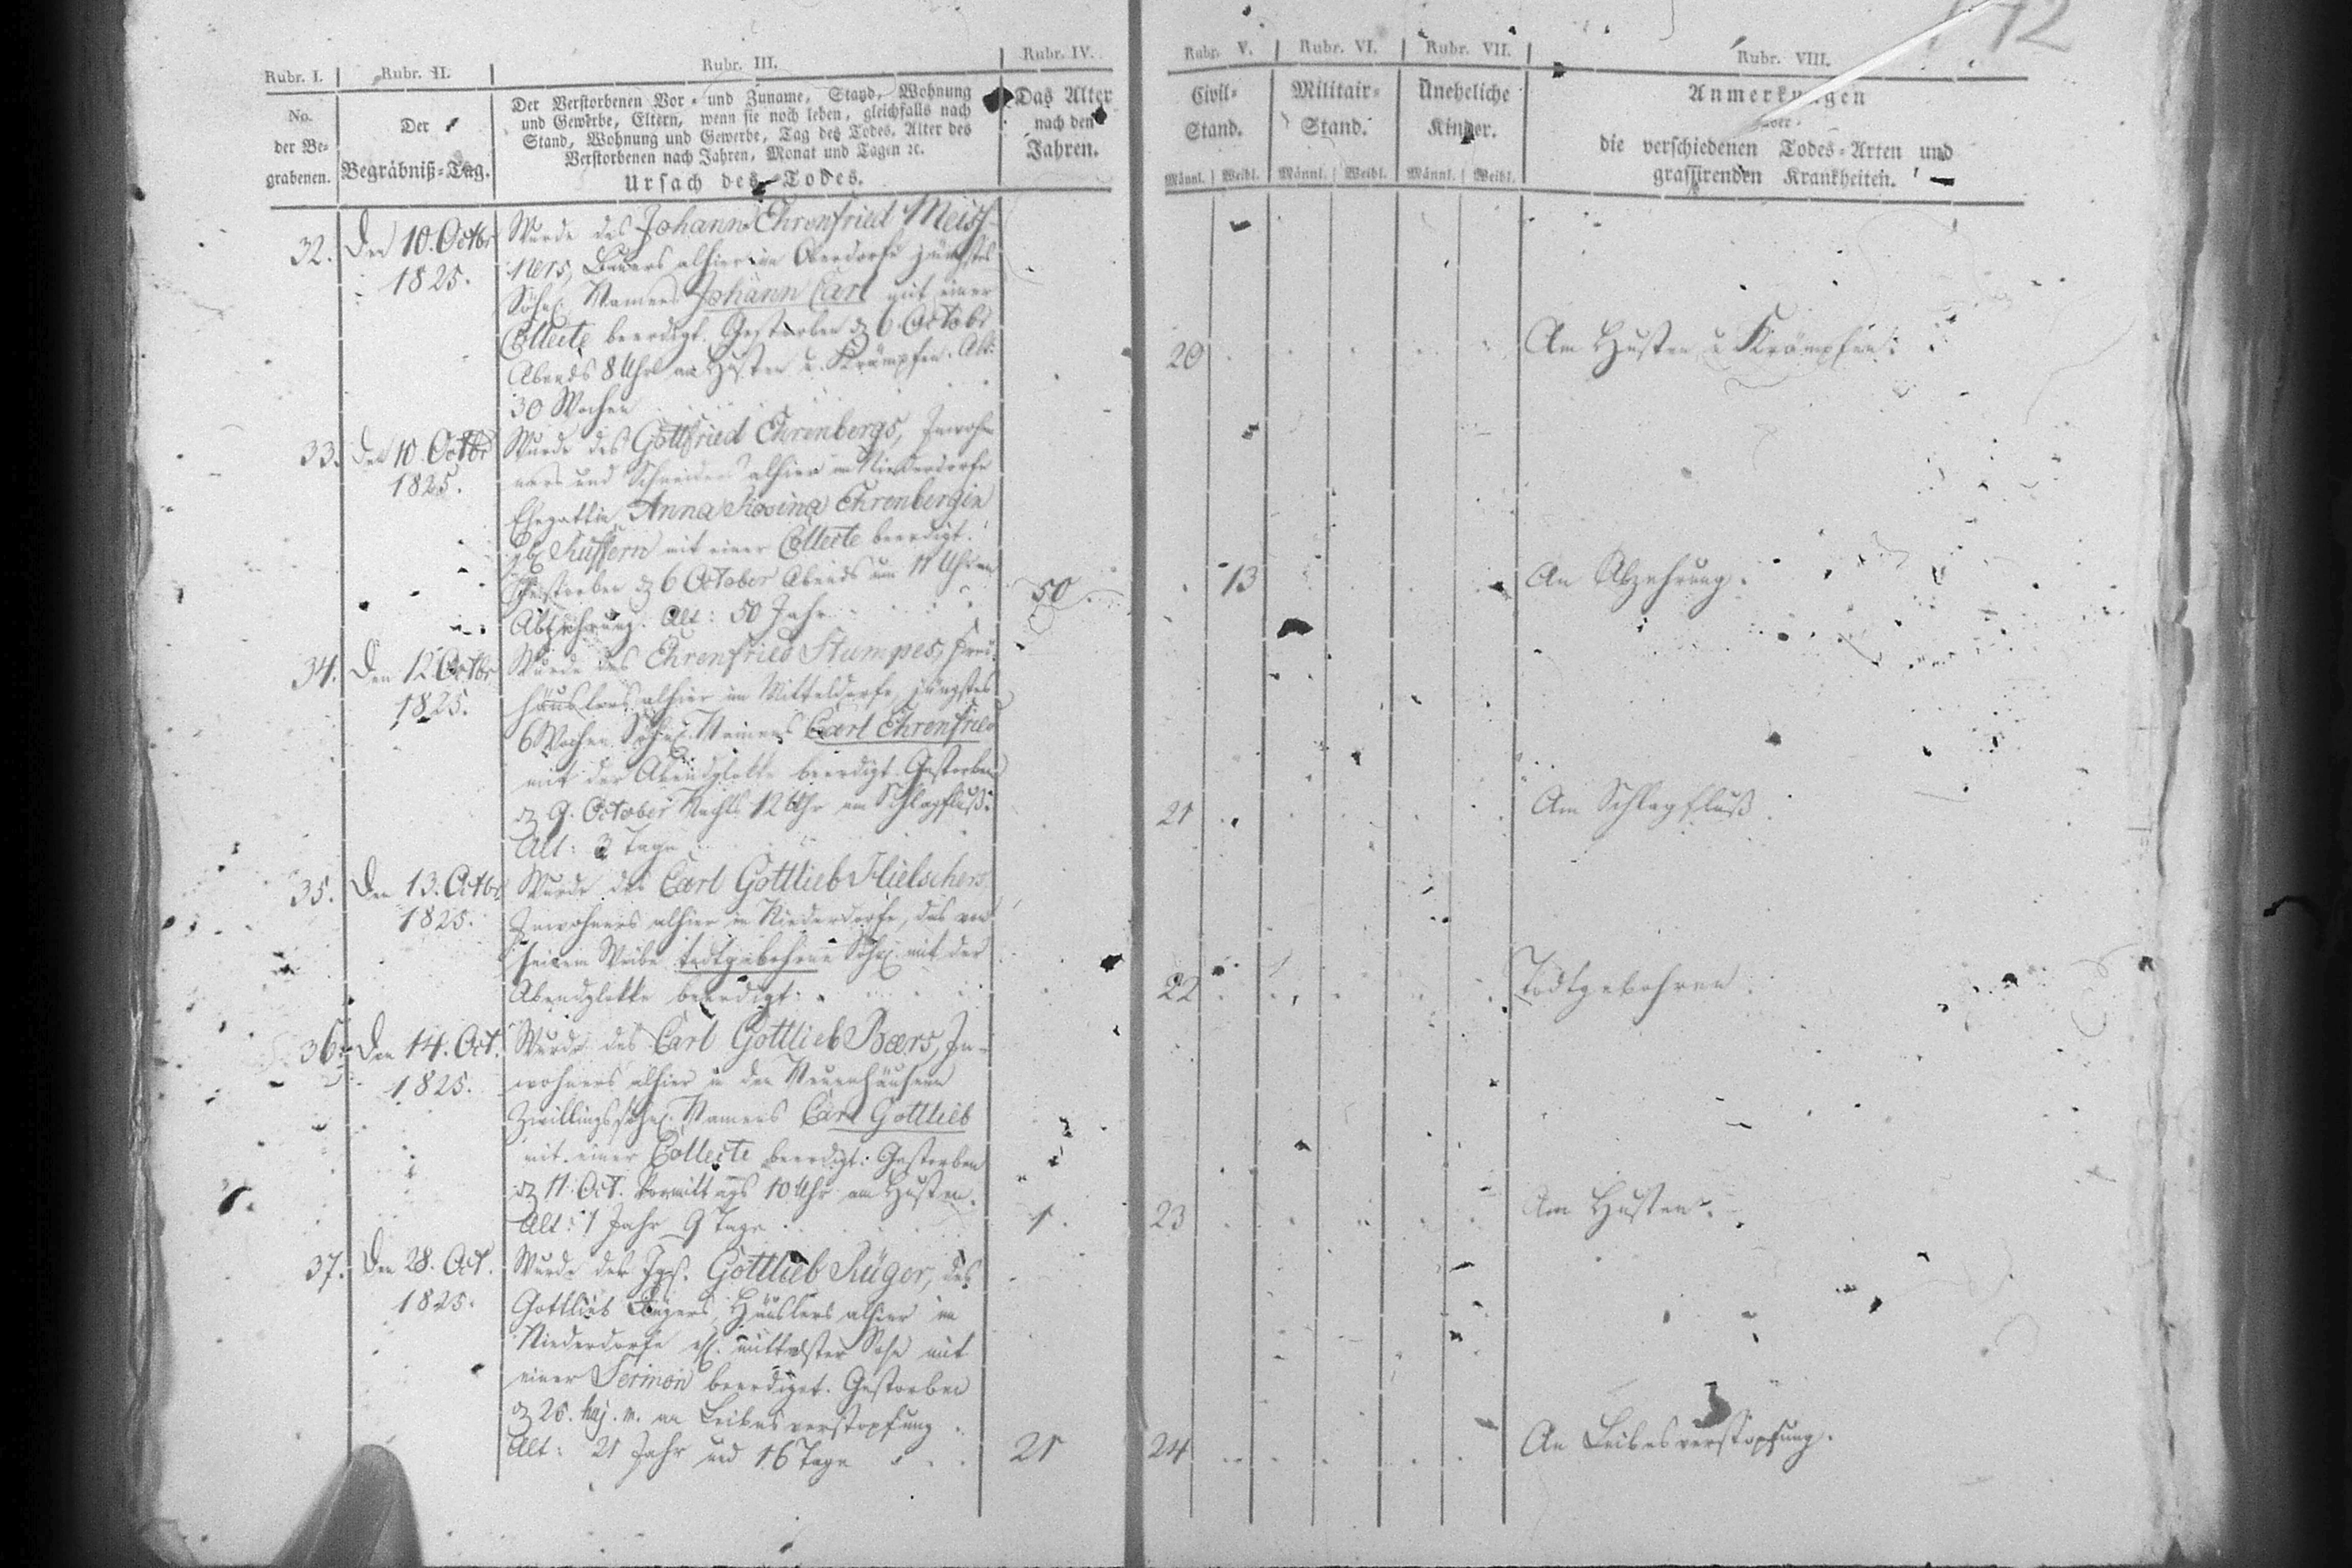 172
Rubr. I. Rubr. II. Rubr. III. Rubr. IV. Rubr. V. Rubr. VI. Rubr. VII. Rubr. VIII.
No. der Be-grabenen.
Der Begräbniß-Tag.
Der Verstorbenen Vor- und Zuname, Stand, Wohnung
und Gewerbe, Eltern, wenn sie noch leben, gleichfalls nach
Stand, Wohnung und Gewerbe, Tag des Todes, Alter des
Verstorbenen nach Jahren, Monat und Tagen ꝛc.
Ursach des Todes.
Das Alter
nach den
Jahren.
Civil-
Stand.
Männl. Weibl.
Militair-
Stand.
Männl. Weibl.
Uneheliche
Kinder.
Männl. Weibl.
Anmerkungen
über
die verschiedenen Todes-Arten und
grassirenden Krankheiten.
32. Den 10. Octbr Wurde des Johann Ehrenfried Meiss-
1825. ners, Bauers alhier im Oberdorfe jüngstes
Söhnl. Namens Johann Carl mit einer
Collecte beerdigt. Gestorben d 6. Octobr
Abends 8 Uhr am Husten u. Krämpfen. Alt: 20 Am Husten u Krämpfen.
30 Wochen
33. Den 10. Octbr Wurde des Gottfried Ehrenbergs, Inwoh
1825. ners und Schneiders alhier im Niederdorfe
Ehegattin Anna Rosina Ehrenbergin
geb. mit einer Collecte beerdigt.
Gestorben d 6 October Abends um 11 Uhr an 50 13 An Abzehrung.
Abzehrung. Alt: 50 Jahr
34. Den 12 Octbr Wurde des Ehrenfried Stumpes, Frei-
1825. häuslers alhier im Mitteldorfe, jüngstes
6 Wochen Söhnl. Namens Carl Ehrenfried
mit der Abendglokke beerdigt. Gestorben
d 9. October Nachts 12 Uhr am Schlagfluß. 21 Am Schlagfluß.
Alt: 3 Tage
35. Den 13. Octbr Wurde des Carl Gottlieb Hielschers
1825. Inwohners alhier in Niederdorfe, das von
seinem Weibe todtgebohrne Söhnl. mit der
Abendglokke beerdigt. 22 Todtgebohren.
36. Den 14. Oct. Wurde des Carl Gottlieb Baers, In-
1825. wohners alhier in den Neuenhäusern
Zwillingssöhnl. Namens Carl Gottlieb
mit einer Collecte beerdigt. Gestorben
d 11. Oct. Vormittags 10 Uhr am Husten.
Alt: 1 Jahr 9 Tage 1. 23 Am Husten.
37. Den 28. Oct. Wurde der Jgs. Gottlieb Rüger, des
1825. Gottlieb Rügers, Häuslers alhier im
Niederdorfe ehl. mittelster Sohn mit
einer Sermon beerdiget. Gestorben
d 26. huj. m. an Leibesverstopfung.
Alt: 21 Jahr und 16 Tage 21 24 An Leibesverstopfung.